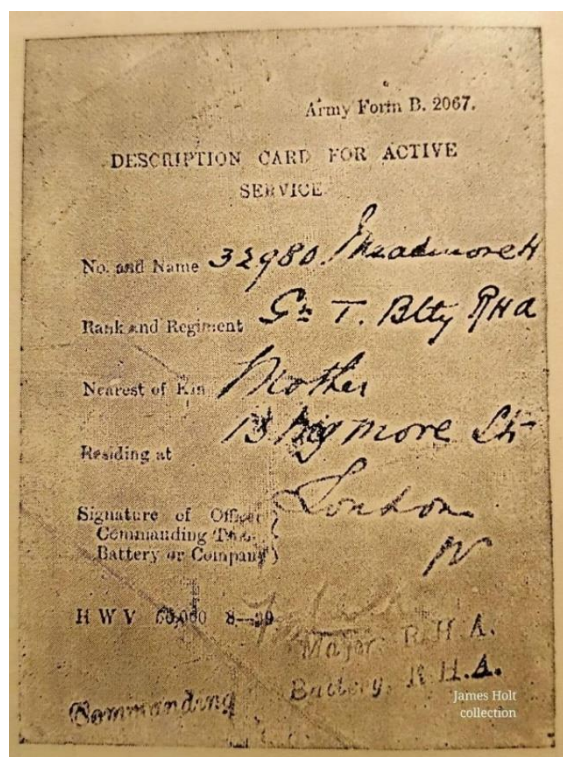 Army Form B. 2067.
DESCRIPTION CARD FOR ACTIVE
SERVICE
No. and Name 32980. Meadmore H
Rank and Regiment Gr T. Btty RHA
Nearest of Kin Mother
Residing at 13 more St
London
N
Signature of Officer
Commanding
Battery or Company
H W V 8—99
Major, R.H.A.
Commanding Battery, R.H.A.
James Holt
collection